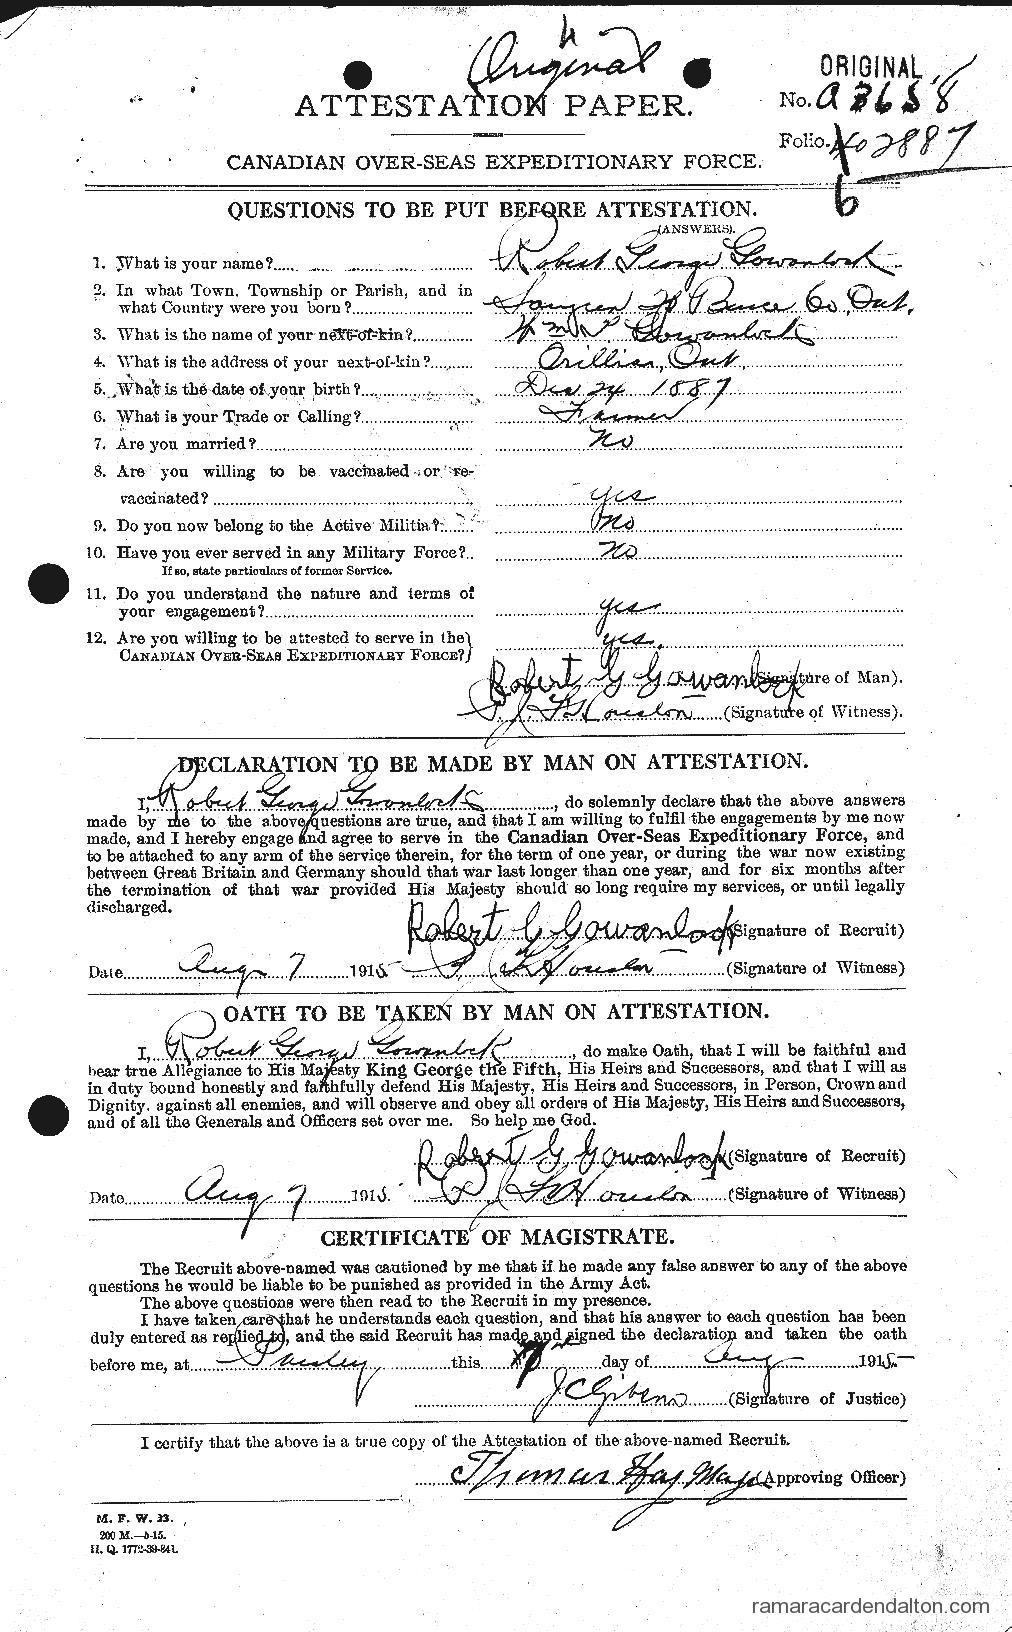 Original
ORIGINAL
ATTESTATION PAPER.
No. A 3658
Folio. 402887
6
CANADIAN OVER-SEAS EXPEDITIONARY FORCE.
QUESTIONS TO BE PUT BEFORE ATTESTATION.
(ANSWERS).
1. What is your name? Robert George Gowanlock
2. In what Town, Township or Parish, and in
what Country were you born? Saugeen Tp Bruce Co, Ont.
3. What is the name of your next-of-kin? Gowanlock
4. What is the address of your next-of-kin? Orillia, Ont,
5. What is the date of your birth? Dec 24 1887
6. What is your Trade or Calling? Farmer
7. Are you married? No
8. Are you willing to be vaccinated or re-
vaccinated? yes
9. Do you now belong to the Active Militia? No
10. Have you ever served in any Military Force? No
If so, state particulars of former Service.
11. Do you understand the nature and terms of
your engagement? yes
12. Are you willing to be attested to serve in the
CANADIAN OVER-SEAS EXPEDITIONARY FORCE? yes.
Robert G Gowanlock (Signature of Man).
Houston (Signature of Witness).
DECLARATION TO BE MADE BY MAN ON ATTESTATION.
I, Robert George Gowanlock, do solemnly declare that the above answers
made by me to the above questions are true, and that I am willing to fulfil the engagements by me now
made, and I hereby engage and agree to serve in the Canadian Over-Seas Expeditionary Force, and
to be attached to any arm of the service therein, for the term of one year, or during the war now existing
between Great Britain and Germany should that war last longer than one year, and for six months after
the termination of that war provided His Majesty should so long require my services, or until legally
discharged.
Robert G Gowanlock (Signature of Recruit)
Date Aug 7 1915 Houston (Signature of Witness)
OATH TO BE TAKEN BY MAN ON ATTESTATION.
I, Robert George Gowanlock, do make Oath, that I will be faithful and
bear true Allegiance to His Majesty King George the Fifth, His Heirs and Successors, and that I will as
in duty bound honestly and faithfully defend His Majesty, His Heirs and Successors, in Person, Crown and
Dignity. against all enemies, and will observe and obey all orders of His Majesty, His Heirs and Successors,
and of all the Generals and Officers set over me. So help me God.
Robert G Gowanlock (Signature of Recruit)
Date Aug 7 1915 Houston (Signature of Witness)
CERTIFICATE OF MAGISTRATE.
The Recruit above-named was cautioned by me that if he made any false answer to any of the above
questions he would be liable to be punished as provided in the Army Act.
The above questions were then read to the Recruit in my presence.
I have taken care that he understands each question, and that his answer to each question has been
duly entered as replied to, and the said Recruit has made and signed the declaration and taken the oath
before me, at Paisley this 7 day of Aug 1915
J C Gibson (Signature of Justice)
I certify that the above is a true copy of the Attestation of the above-named Recruit.
Thomas Hay Major (Approving Officer)
M. F. W. 23.
200 M.—5-15.
H. Q. 1772-39-841.
ramaracardendalton.com